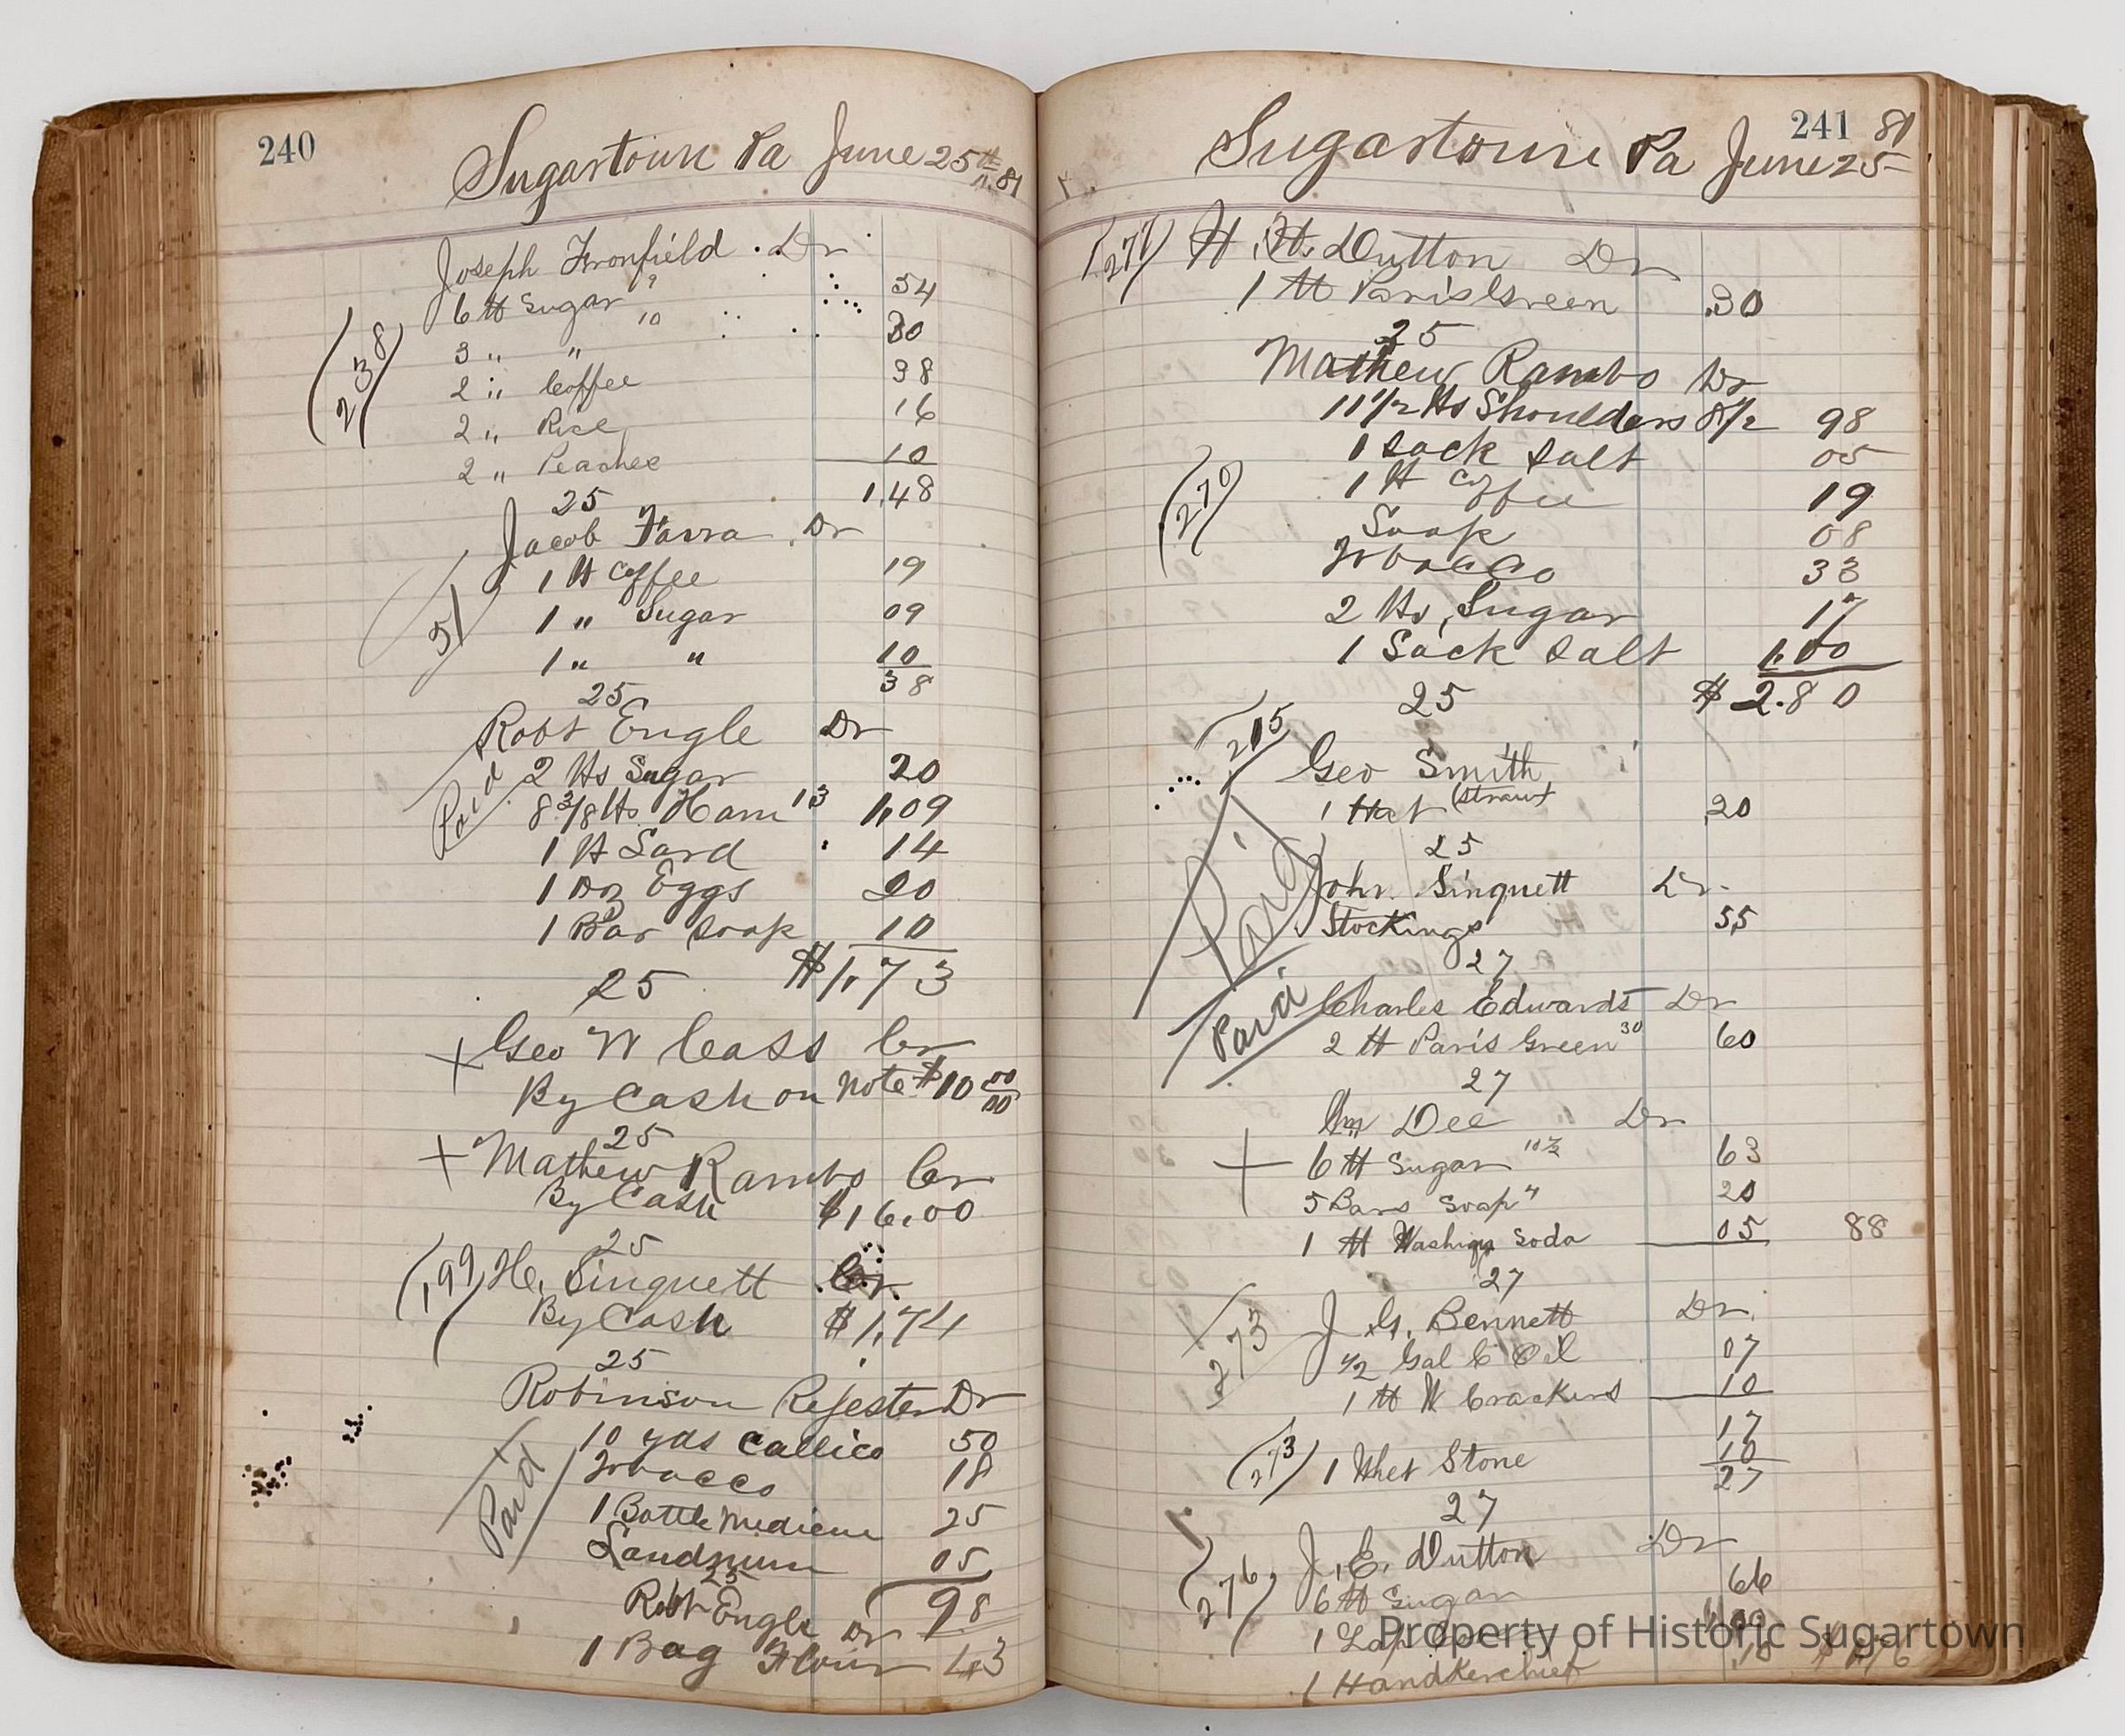 240
Sugartown Pa June 25th 81
Joseph Fronfield Dr
6 lb Sugar 9 54
3 " " 10 30
2 " Coffee 38
2 " Rice 16
2 " Peaches 10
25 1.48
(238)
Jacob Farra Dr
1 lb Coffee 19
1 " Sugar 09
1 " " 10
38
51
25
Robt Engle Dr
Paid
2 lbs Sugar 20
8 3/8 lbs Ham 13 1,09
1 lb Lard 14
1 Doz Eggs 20
1 Bar Soap 10
25 $1.73
Geo W Cass Cr
By Cash on Note $10 00/00
25
Mathew Rambo Cr
By Cash $16.00
25
(199) He. Singuett Cr.
By Cash $1.74
25
Robinson Dr
Paid
10 yds Callico 50
Tobacco 18
1 Bottle Medicine 25
Laudnum 05
25 98
Robt Engle Dr
1 Bag Flour 43
241 81
Sugartown Pa June 25
(271) H. H. Dutton Dr
1 lb Paris Green .30
25
Mathew Rambo Dr
11 1/2 lbs Shoulders 8 1/2 98
1 Sack Salt 05
(270)
1 lb Coffee 19
Soap 08
Tobacco 33
2 lbs, Sugar 17
1 Sack Salt 1.00
25 $2.80
215
Geo Smith
1 Hat (Straw) 20
Paid
25
John Singuett Dr.
Stockings 55
27
Paid
Charles Edwards Dr
2 lb Paris Green 30 60
27
Wm Dee Dr
6 lb Sugar 10 1/2 63
5 Bars Soap 4 20
1 lb Washing Soda 05 88
27
273
J. G. Bennett Dr.
1/2 Gal C Oil 07
1 lb W Crackers 10
17
(273) 1 Whet Stone 10
27
27
(276)
J. E. Dutton Dr
6 lb Sugar 66
1 Lap
1 Handkerchief
Property of Historic Sugartown